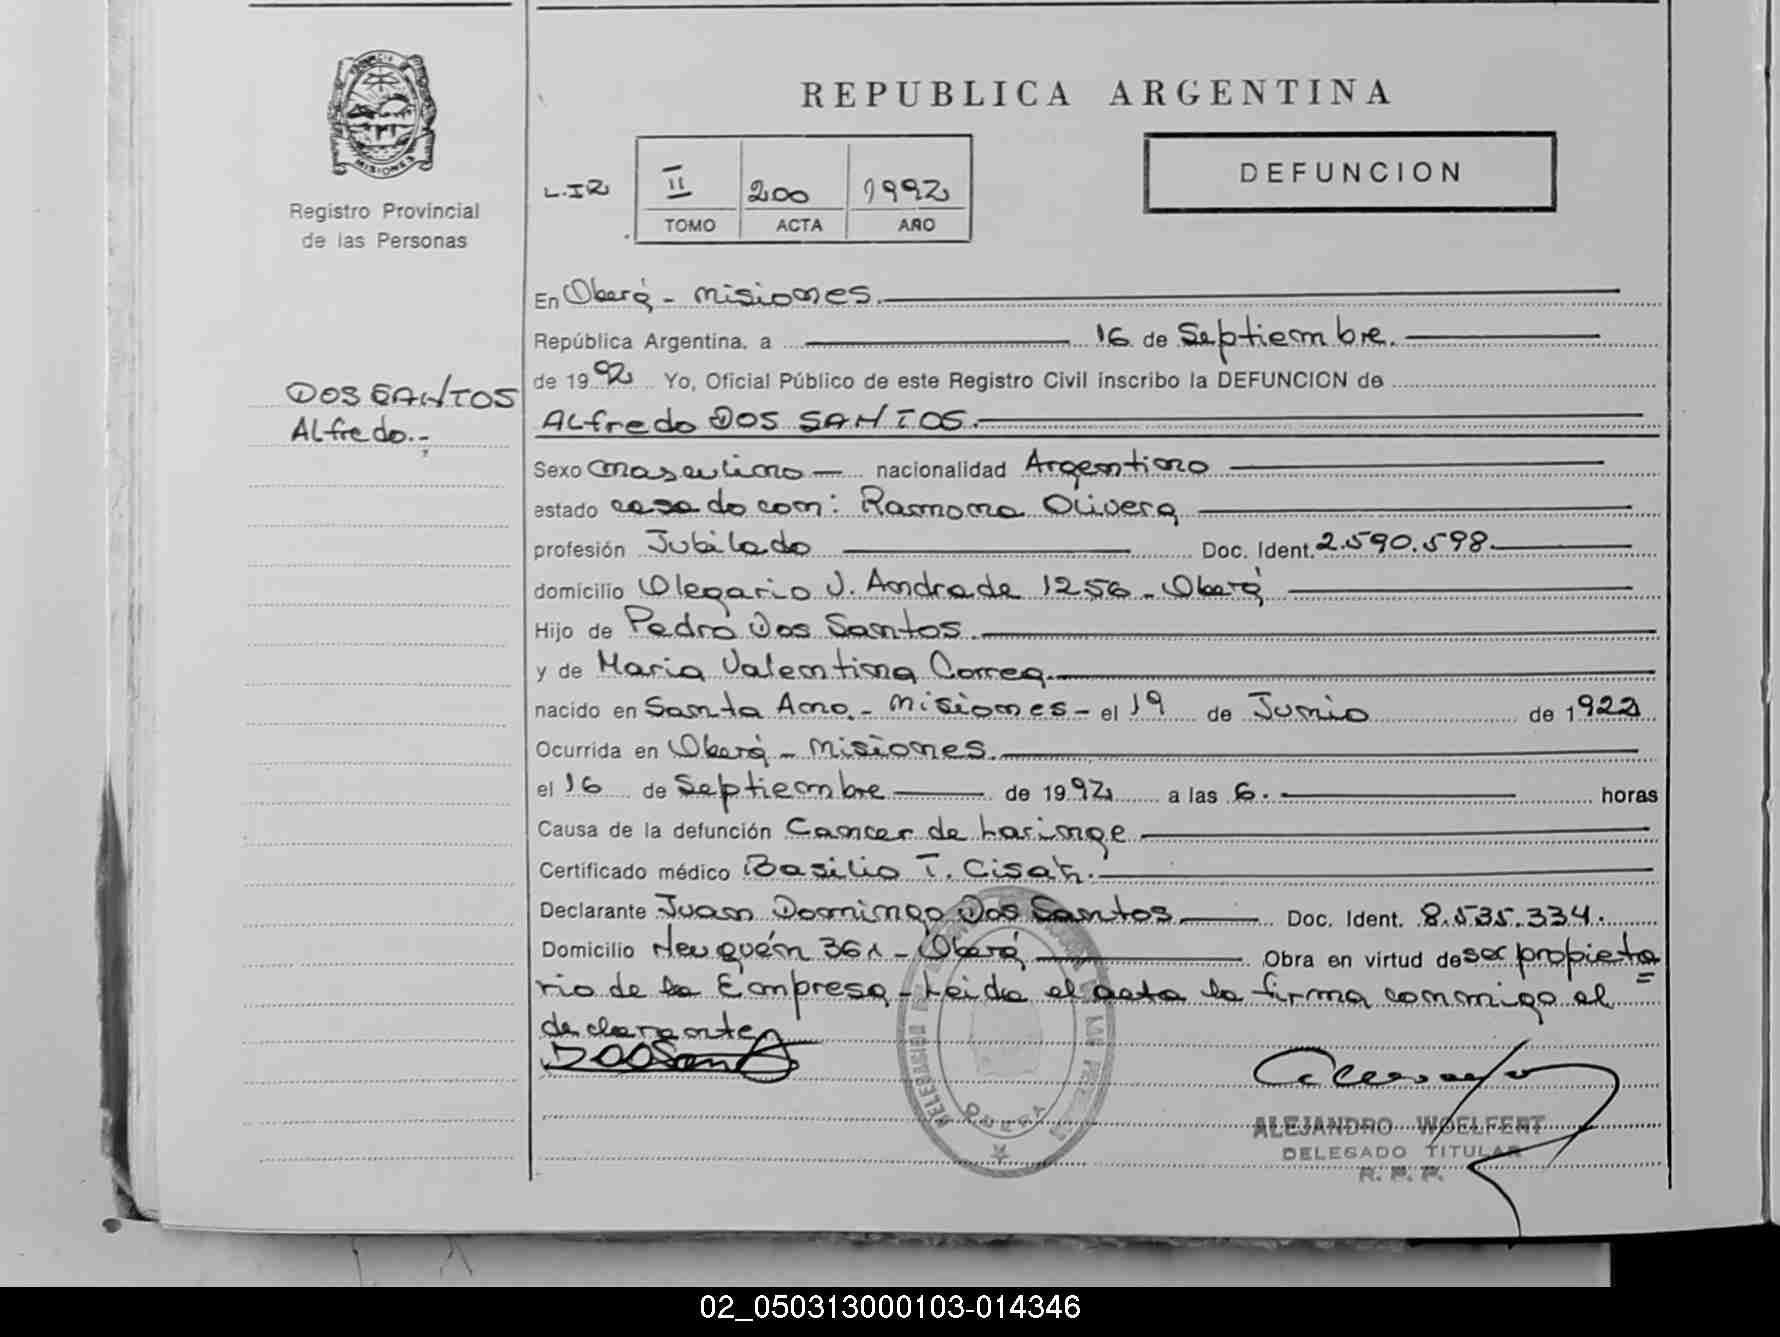 PROVINCIA DE
MISIONES
Registro Provincial
de las Personas
DOS SANTOS
Alfredo.-
REPUBLICA ARGENTINA
DEFUNCION
L.I2
II 200 1992
TOMO ACTA AÑO
En Oberá - misiones.
República Argentina, a 16 de Septiembre.
de 1992 Yo, Oficial Público de este Registro Civil inscribo la DEFUNCION de
Alfredo DOS SANTOS.
Sexo masculino nacionalidad Argentino
estado casado con: Ramona Olivera
profesión Jubilado Doc. Ident. 2.590.598
domicilio Olegario V. Andrade 1256 - Oberá
Hijo de Pedro Dos Santos.
y de Maria Valentina Correa.
nacido en Santa Ana. - misiones - el 19 de Junio de 1922
Ocurrida en Oberá - misiones.
el 16 de Septiembre de 1992 a las 6. horas
Causa de la defunción Cancer de Laringe
Certificado médico Basilio T.
Declarante Juan Domingo Dos Santos Doc. Ident. 8.535.334.
Domicilio Neuquén 361 - Oberá Obra en virtud de ser propieta
rio de la Empresa - Leida el acta la firma conmigo el
declarante
ALEJANDRO WOELFERT
DELEGADO TITULAR
R. P. P.
OBERA
02_050313000103-014346